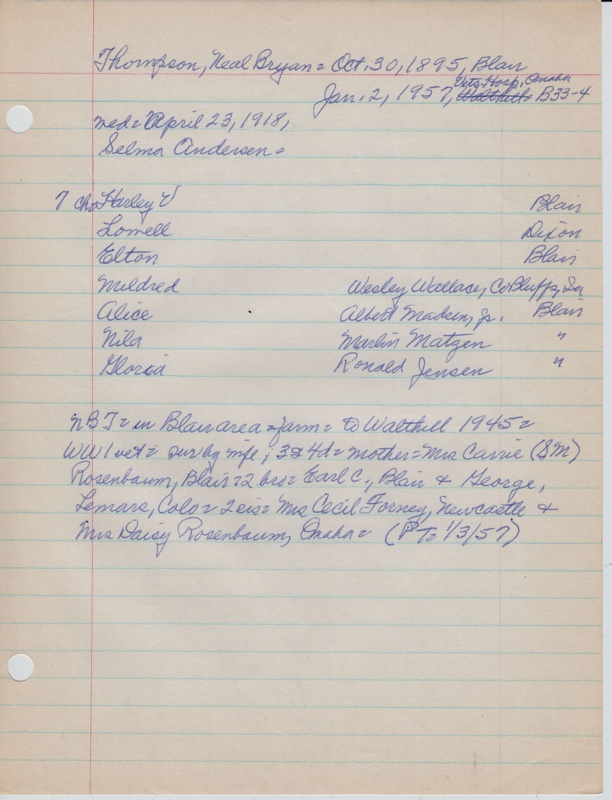 Thompson, Neal Bryan = Oct. 30, 1895, Blair
Vets Hosp, Omaha
Jan. 2, 1957, Walthill B33-4
med = April 23, 1918,
Selma Andersen =
7 cho Harley V Blair
Lowell Dixon
Elton Blair
Mildred Wesley Wallace, Co Bluffs, Ia
Alice Albert Madsen, Jr. Blair
Nila Marlin Matzen "
Gloria Ronald Jensen "
NBT = in Blair area = farm = to Walthill 1945 =
WW1 vet = sur by wife, 3s 4d = mother = Mrs Carrie (SM)
Rosenbaum, Blair = 2 bro = Earl C., Blair & George,
Lemars, Colo = 2 sis = Mrs Cecil Forney, Newcastle &
Mrs Daisy Rosenbaum, Omaha = (PT = 1/3/57)